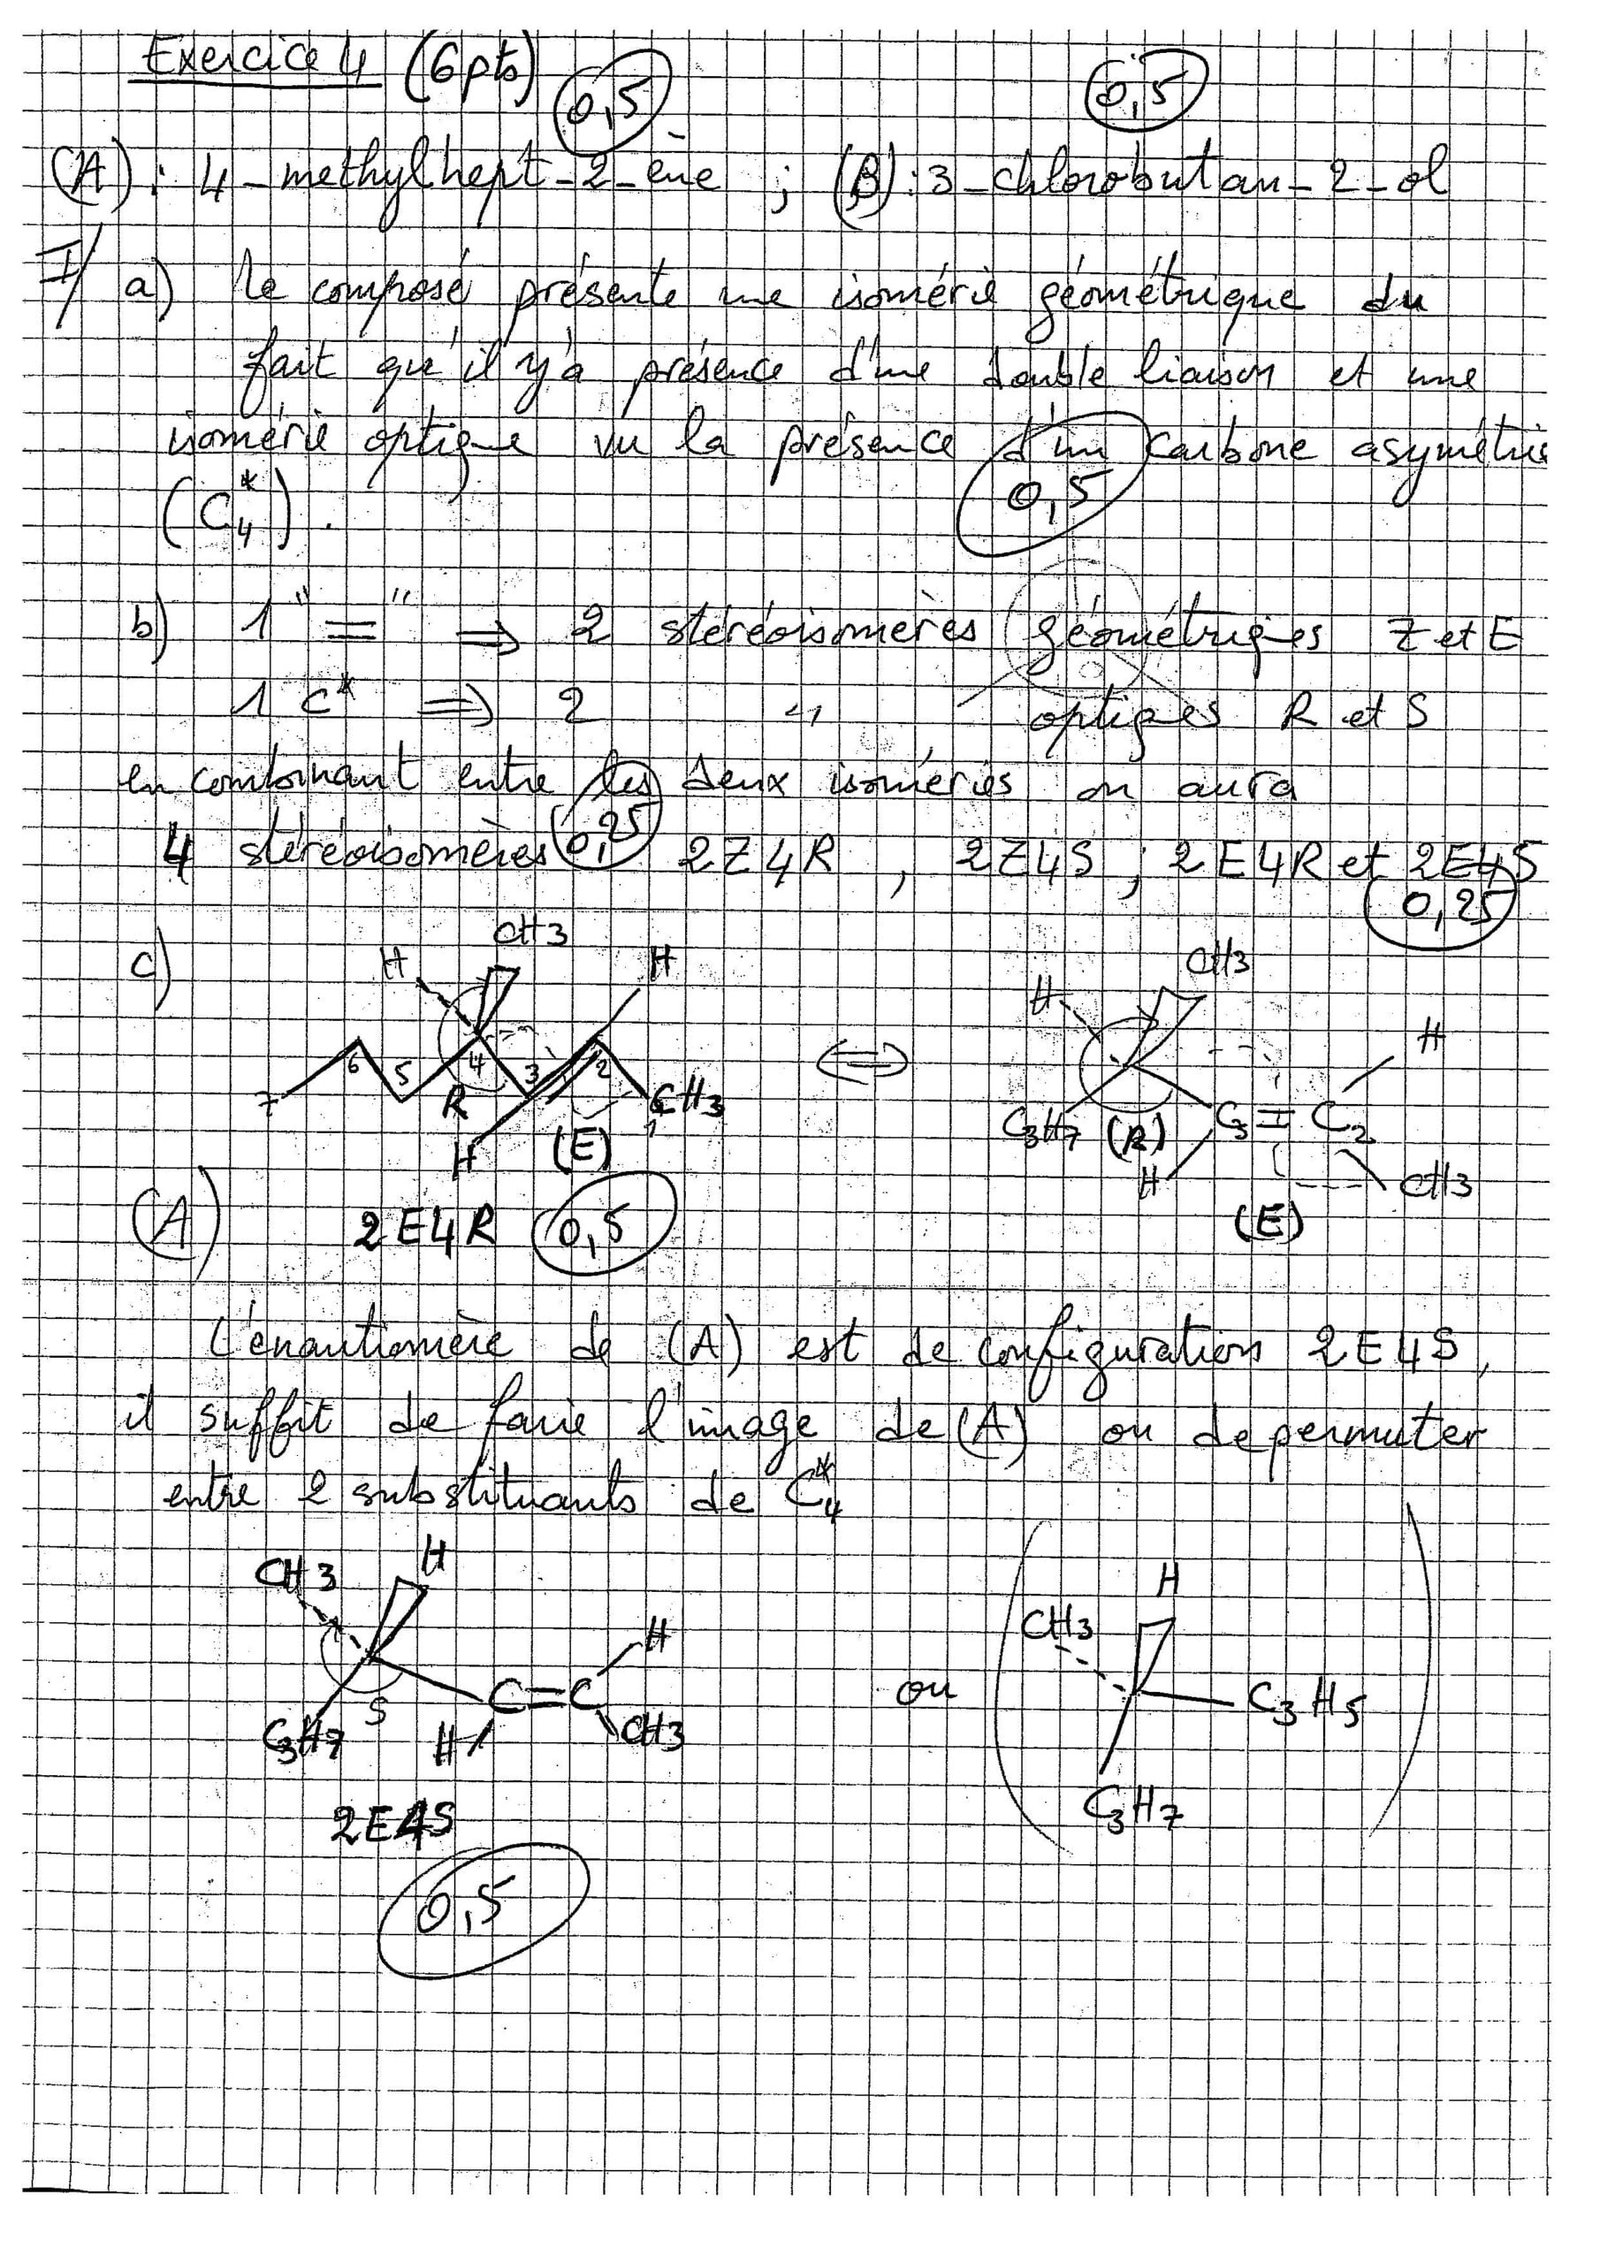 Exercice 4 (6pts) 0,5 0,5
(A) : 4-methylhept-2-ène ; (B) : 3-chlorobutan-2-ol
I/ a) le composé présente une isomérie géométrique du
fait qu'il y'a présence d'une double liaison et une
isomérie optique vu la présence d'un carbone asymétri
(C4*) . 0,5
b) 1 "=" ⇒ 2 stéréoisomères géométriques Z et E
1 C* ⇒ 2 " optiques R et S
en combinant entre les deux isoméries on aura
4 stéréoisomères 0,25 2Z4R , 2Z4S ; 2E4R et 2E4S
0,25
c) H CH3 H ⇔ H CH3 H
7 6 5 4 3 2 1 CH3 R H (E)
C3H7 (R) C3 = C2 H CH3 (E)
(A) 2E4R 0,5
L'énantiomère de (A) est de configuration 2E4S,
il suffit de faire l'image de (A) ou de permuter
entre 2 substituants de C4*
CH3 H H ou CH3 H
C3H7 S H C=C CH3 C3H5
C3H7
2E4S
0,5